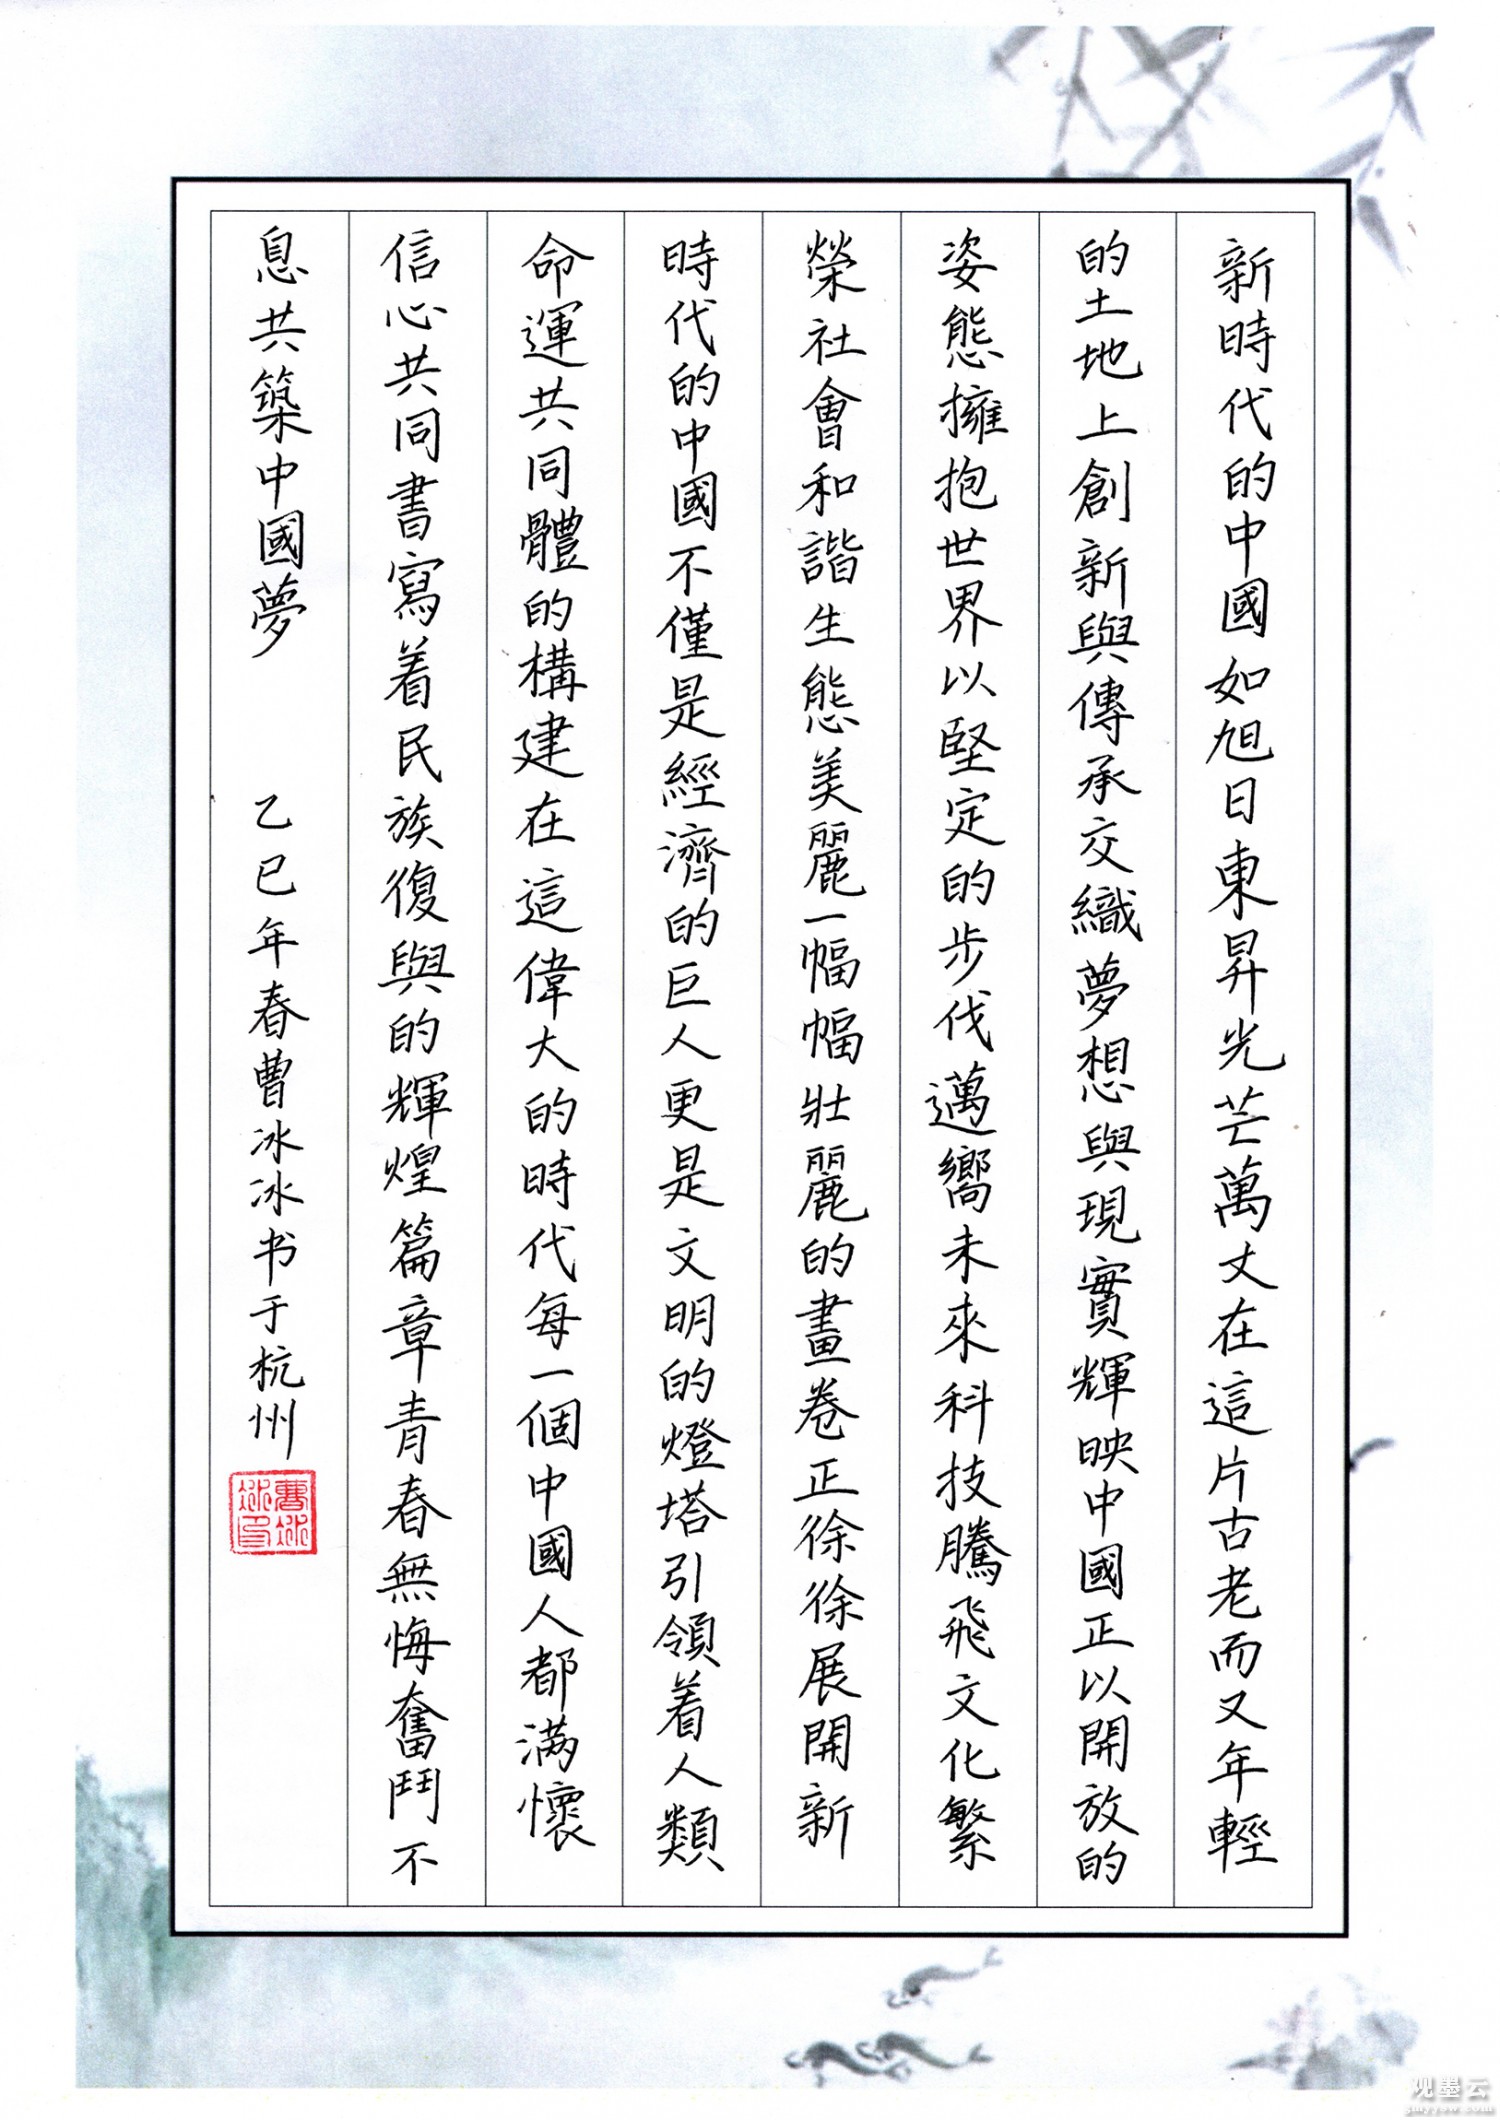 新時代的中國如旭日東昇光芒萬丈在這片古老而又年輕
的土地上創新與傳承交織夢想與現實輝映中國正以開放的
姿態擁抱世界以堅定的步伐邁嚮未來科技騰飛文化繁
榮社會和諧生態美麗一幅幅壯麗的畫卷正徐徐展開新
時代的中國不僅是經濟的巨人更是文明的燈塔引領着人類
命運共同體的構建在這偉大的時代每一個中國人都滿懷
信心共同書寫着民族復與的輝煌篇章青春無悔奮鬥不
息共築中國夢
乙巳年春曹冰冰书于杭州
曹冰冰印
观墨云
gmyyow.com